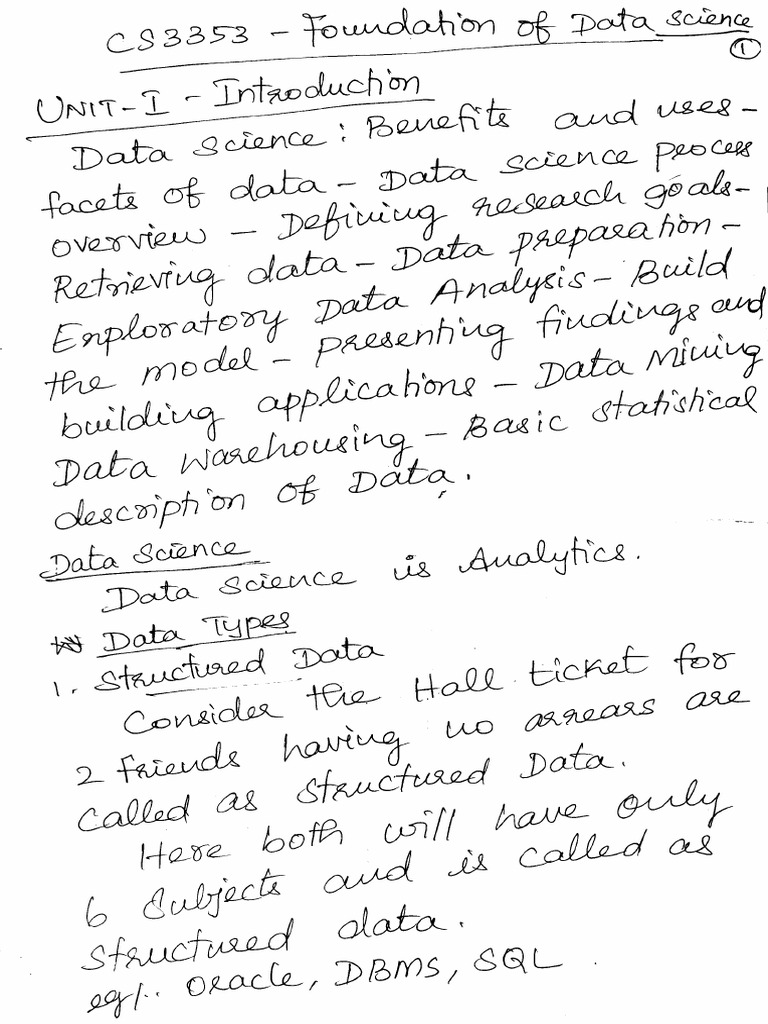 CS3353 - Foundation of Data Science
1
UNIT-I - Introduction
Data Science: Benefits and uses -
facets of data - Data science process
overview - Defining research goals -
Retrieving data - Data preparation -
Exploratory Data Analysis - Build
the model - presenting findings and
building applications - Data Mining
Data Warehousing - Basic Statistical
description of Data.
Data Science
Data Science is Analytics.
Data Types
1. Structured Data
Consider the Hall ticket for
2 friends having no arrears are
called as structured Data.
Here both will have only
6 Subjects and is called as
Structured data.
eg/:. Oracle, DBMS, SQL.